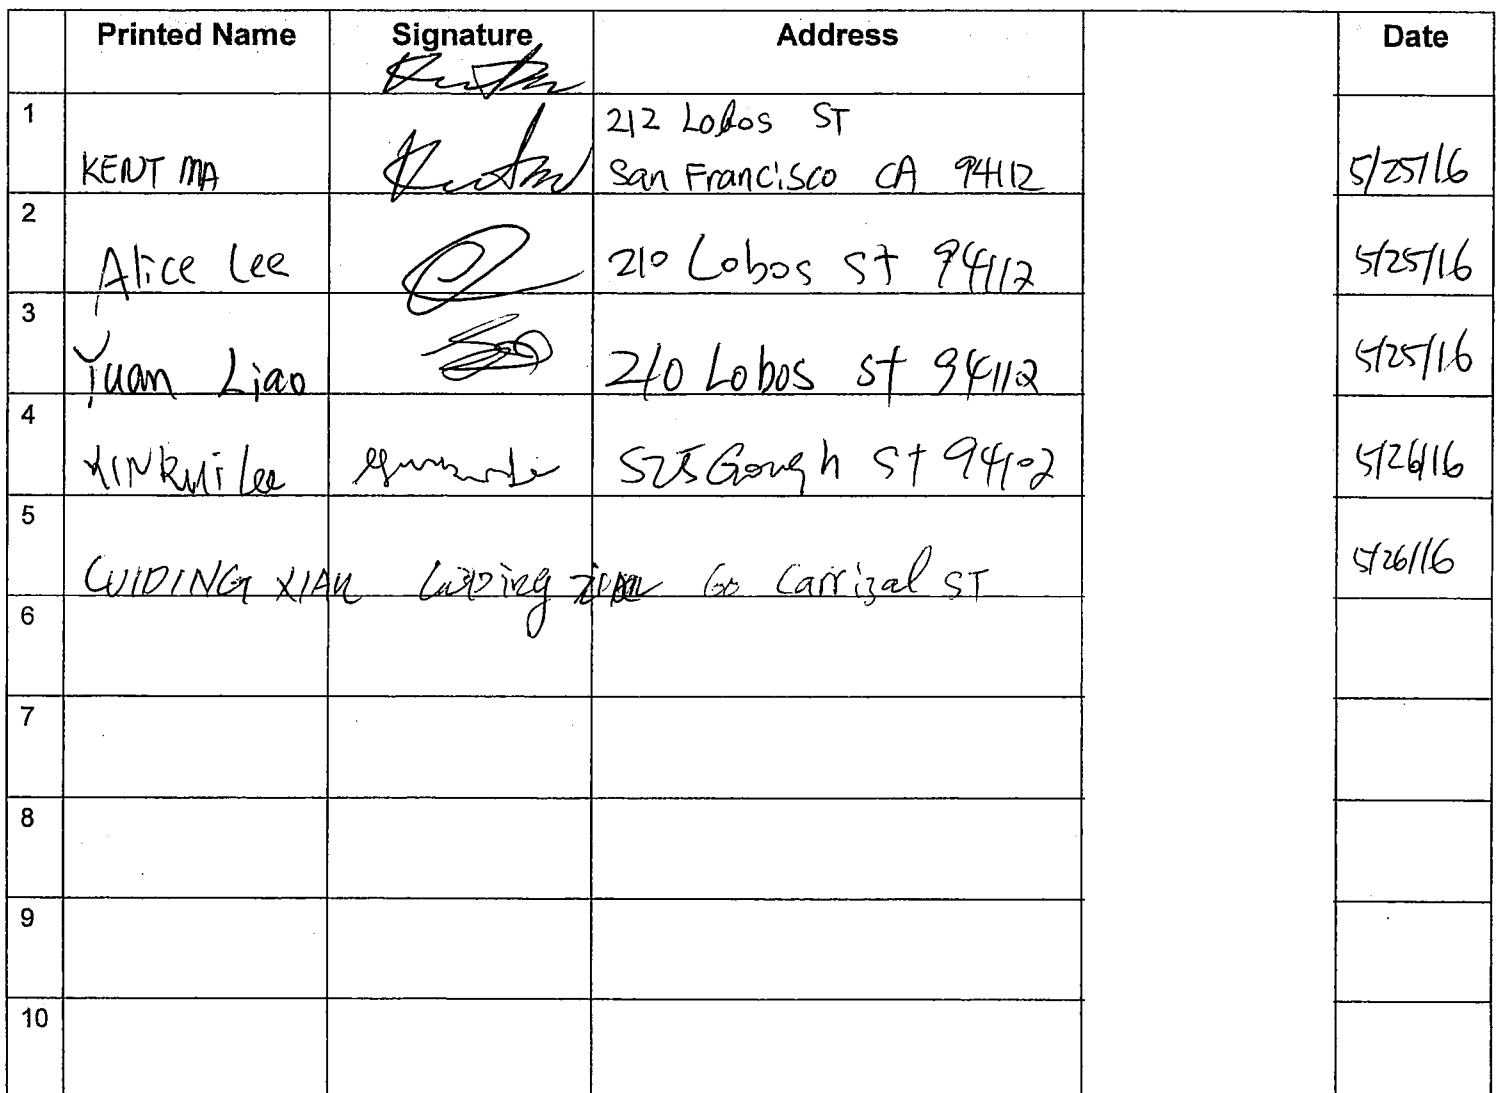 Printed Name Signature Address Date
1
212 Lobos ST
KENT MA San Francisco CA 94112 5/25/16
2
Alice Lee 210 Lobos St 94112 5/25/16
3
Yuan Liao 210 Lobos St 94112 5/25/16
4
XINKUI Lee 525 Gough St 94102 5/26/16
5
CUIDING XIAN Cuiding Xian 60 Carrizal ST 5/26/16
6
7
8
9
10